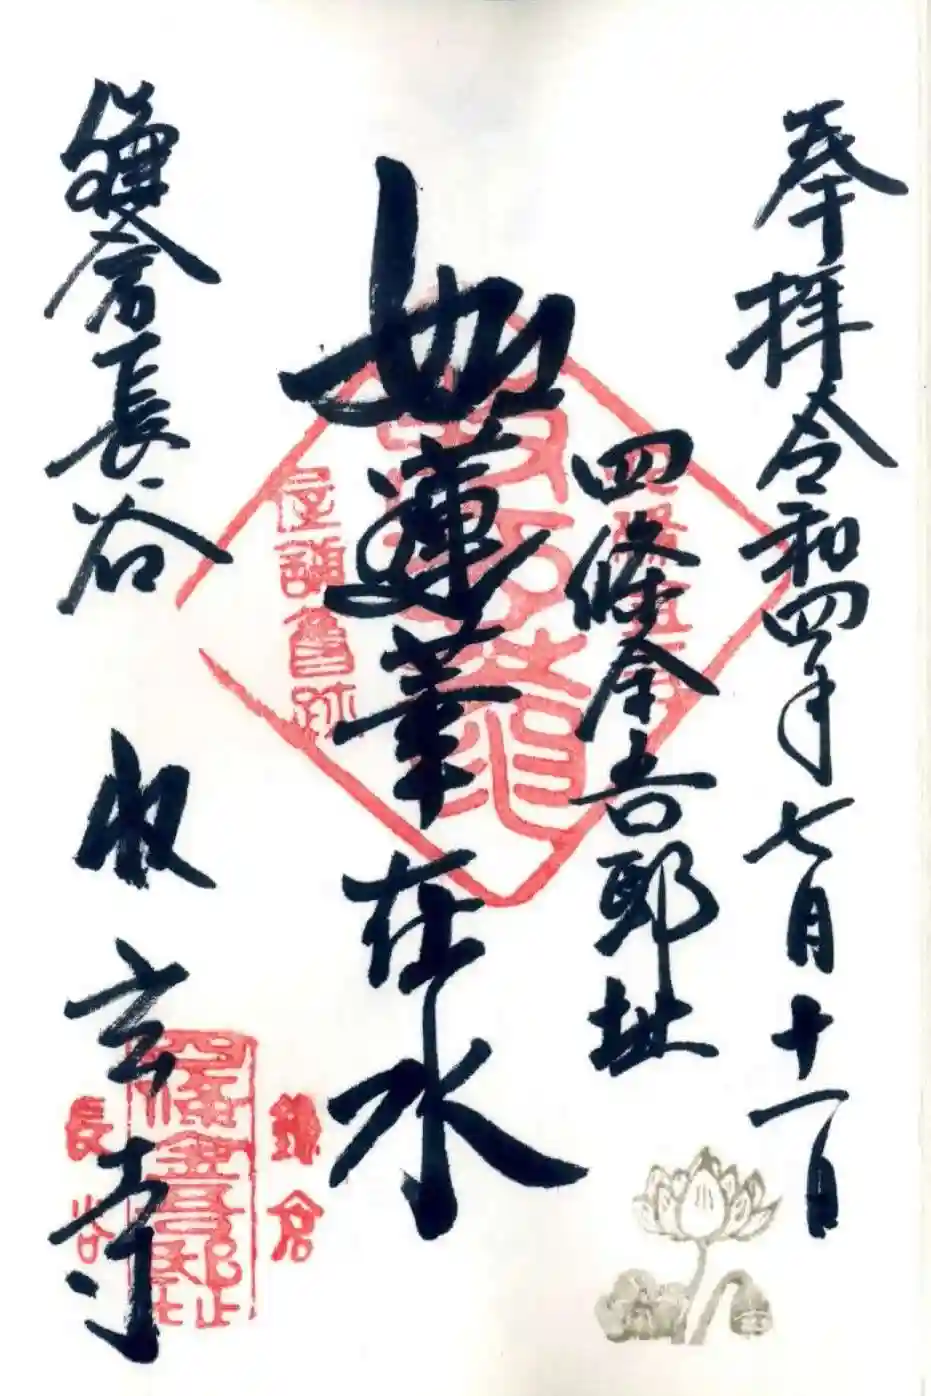 奉拝令和四年七月十一日
四條金吾邸址
如蓮華在水
鎌倉長谷
収玄寺
鎌倉
四條金吾邸址
長谷